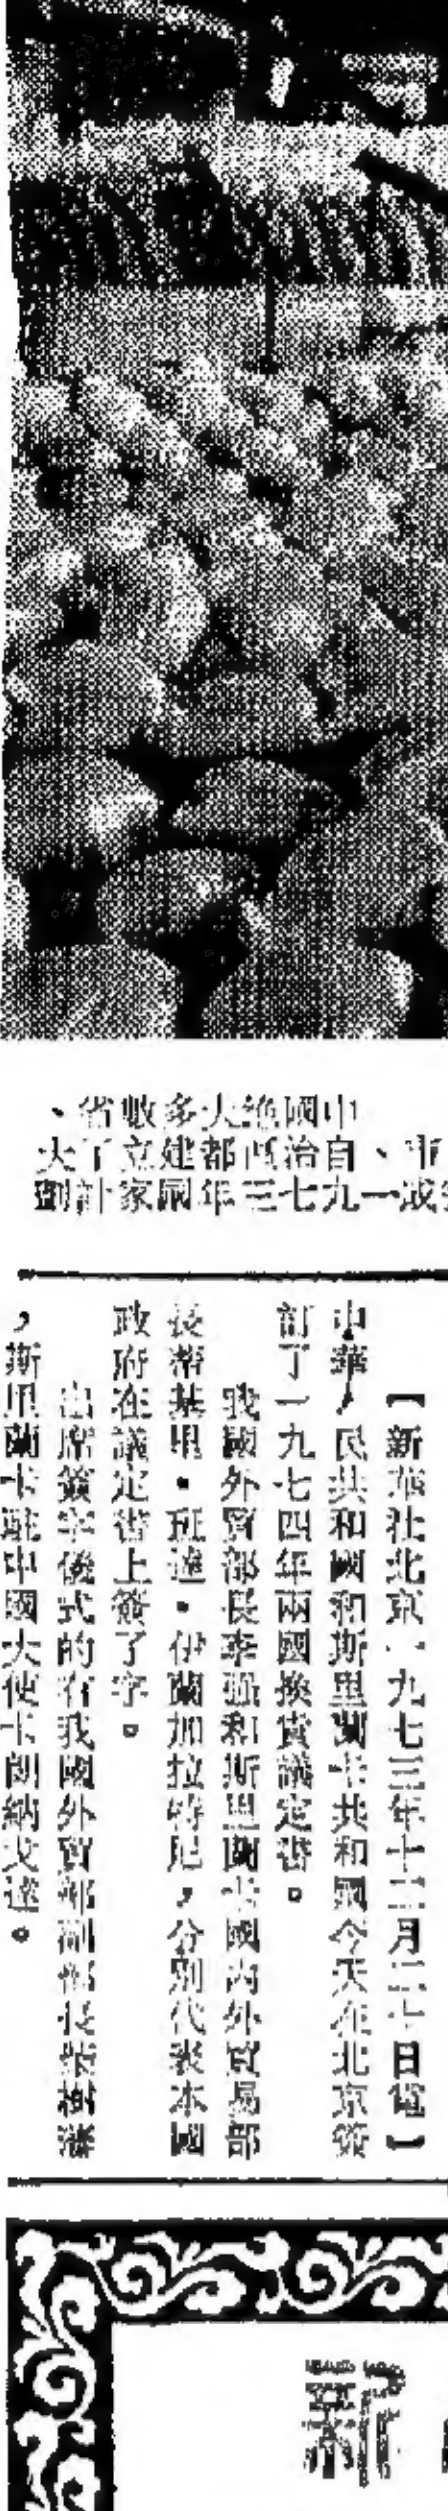 中國絕大多數省、
市、自治區都建立了大
或一九七三年國家計劃
【新華社北京一九七三年十二月二十日電】
中華人民共和國和斯里蘭卡共和國今天在北京簽
訂了一九七四年兩國換貨議定書。
我國外貿部長李強和斯里蘭卡國內外貿易部
長蒂基里·班達·伊蘭加拉特尼，分別代表本國
政府在議定書上簽了字。
出席簽字儀式的有我國外貿部副部長柴樹藩
，斯里蘭卡駐中國大使卡朗納戈達。
新